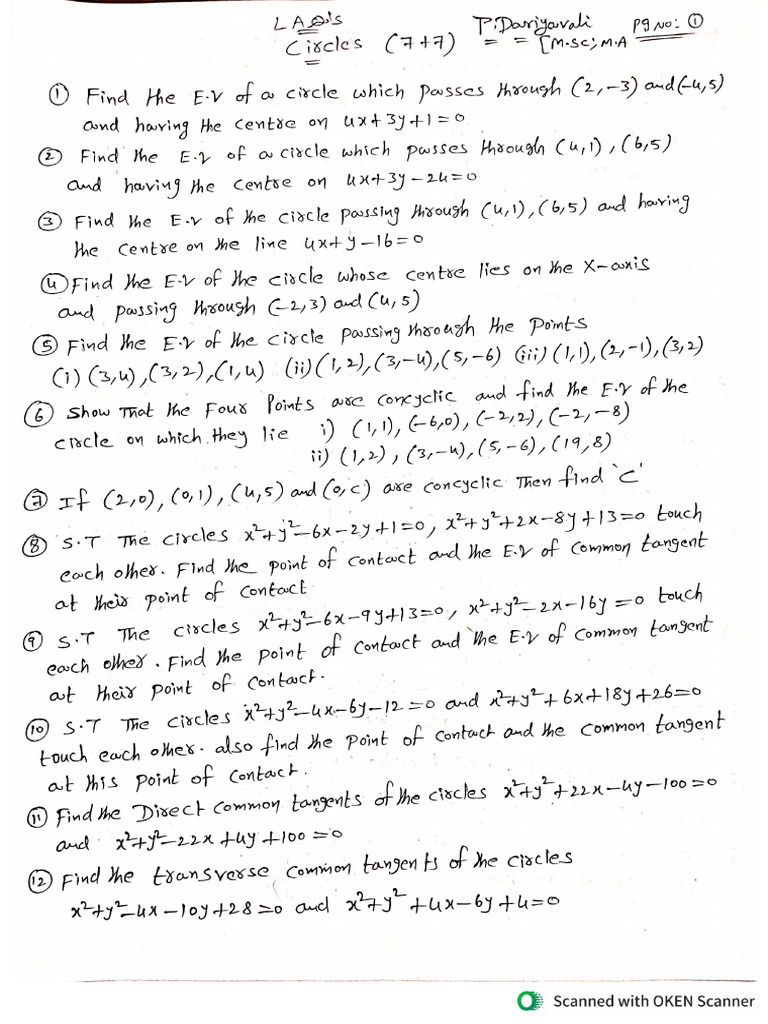 LAQ's
Circles (7+7) P.Dariyavali [M.Sc; M.A Pg No: ①
① Find the E.q of a circle which passes through (2,-3) and (-4,5)
and having the centre on 4x+3y+1=0
② Find the E.q of a circle which passes through (4,1), (6,5)
and having the centre on 4x+3y-24=0
③ Find the E.q of the circle passing through (4,1), (6,5) and having
the centre on the line 4x+y-16=0
④ Find the E.q of the circle whose centre lies on the X-axis
and passing through (-2,3) and (4,5)
⑤ Find the E.q of the circle passing through the points
(i) (3,4), (3,2), (1,4) (ii) (1,2), (3,-4), (5,-6) (iii) (1,1), (2,-1), (3,2)
⑥ Show That the Four Points are concyclic and find the E.q of the
circle on which they lie i) (1,1), (-6,0), (-2,2), (-2,-8)
ii) (1,2), (3,-4), (5,-6), (19,8)
⑦ If (2,0), (0,1), (4,5) and (0,c) are concyclic Then find 'c'
⑧ S.T The circles x²+y²-6x-2y+1=0, x²+y²+2x-8y+13=0 touch
each other. Find the point of contact and the E.q of common tangent
at their point of contact
⑨ S.T The circles x²+y²-6x-9y+13=0, x²+y²-2x-16y=0 touch
each other. Find the point of contact and the E.q of common tangent
at their point of contact.
⑩ S.T The circles x²+y²-4x-6y-12=0 and x²+y²+6x+18y+26=0
touch each other. also find the point of contact and the common tangent
at this point of contact.
⑪ Find the Direct common tangents of the circles x²+y²+22x-4y-100=0
and x²+y²-22x+4y+100=0
⑫ Find the transverse common tangents of the circles
x²+y²-4x-10y+28=0 and x²+y²+4x-6y+4=0
Scanned with OKEN Scanner